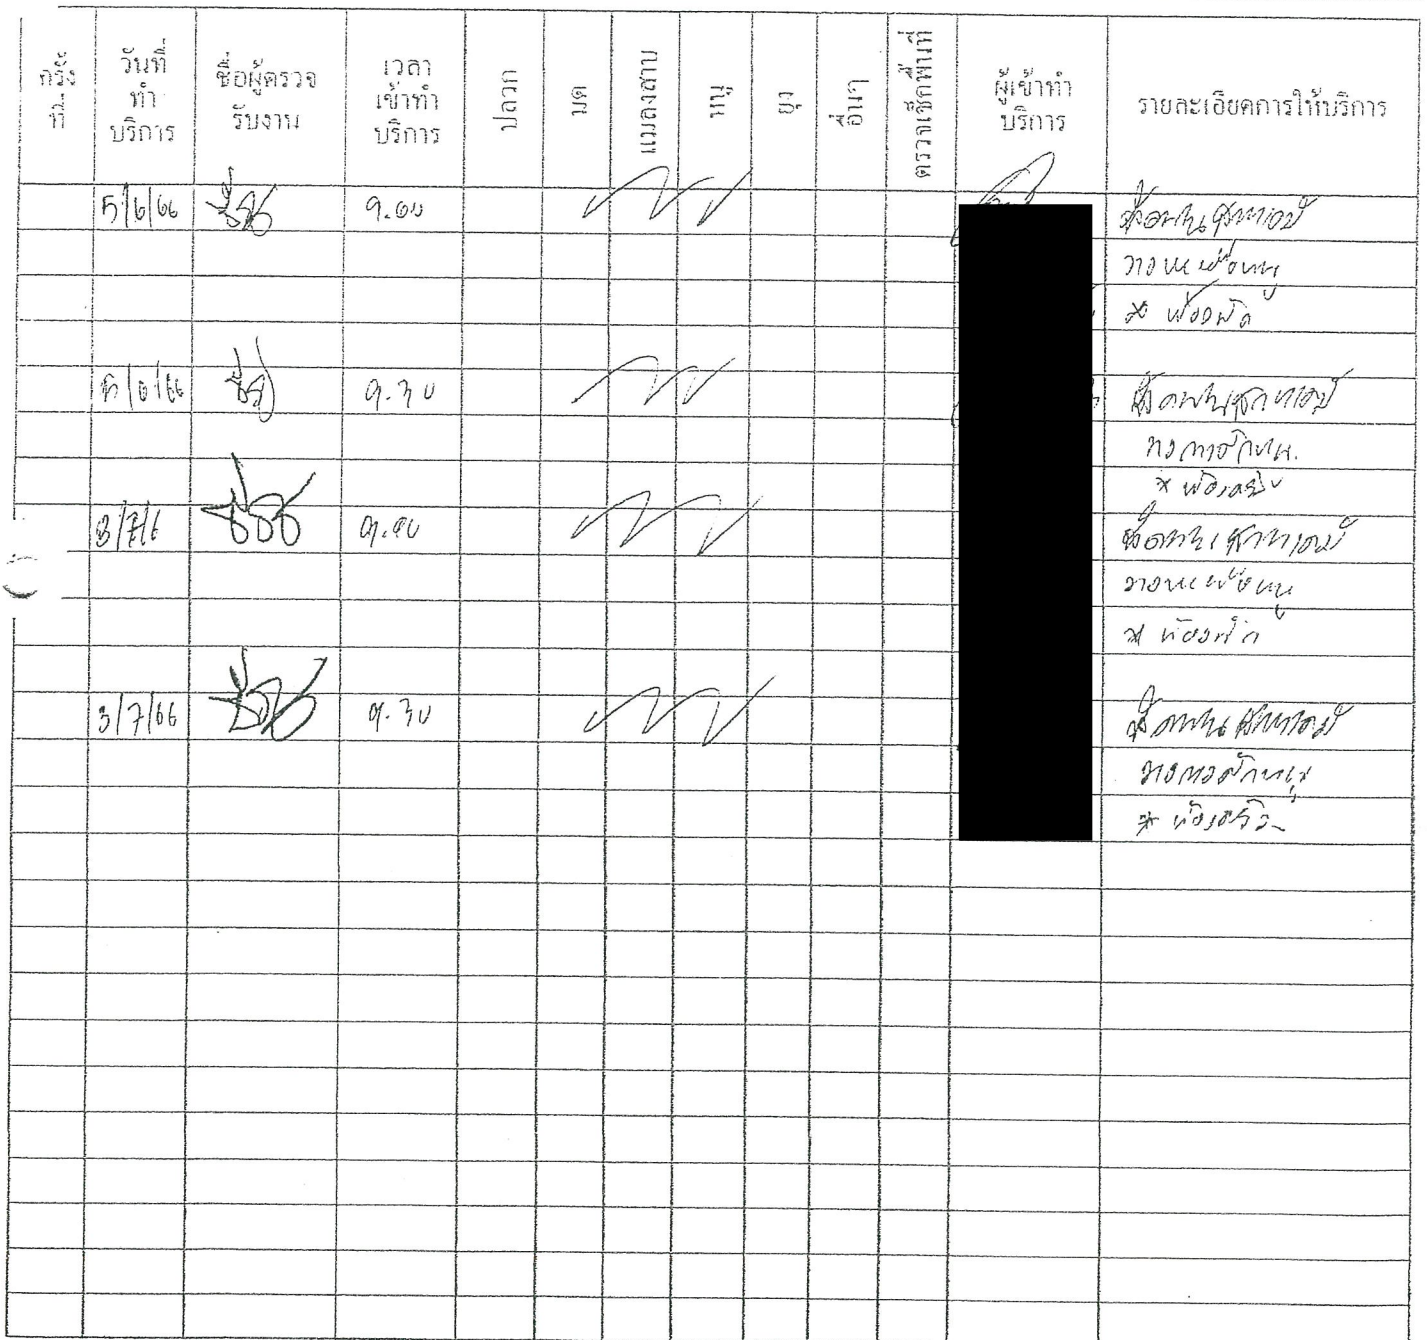 ครั้ง
ที่
วันที่
ทำ
บริการ
ชื่อผู้ตรวจ
รับงาน
เวลา
เข้าทำ
บริการ
ปลวก
มด
แมลงสาบ
หนู
ยุง
อื่นๆ
ตรวจเช็คพื้นที่
ผู้เข้าทำ
บริการ
รายละเอียดการให้บริการ
5/6/66 9.00 ฉีดพ่นสารเคมี
วางเหยื่อหนู
* ห้องพัก
5/6/66 9.30 ฉีดพ่นสารเคมี
วางกาวดักหนู
* ห้องครัว
9.00 ฉีดพ่นสารเคมี
วางเหยื่อหนู
* ห้องพัก
3/7/66 9.30 ฉีดพ่นสารเคมี
วางกาวดักหนู
* ห้องครัว